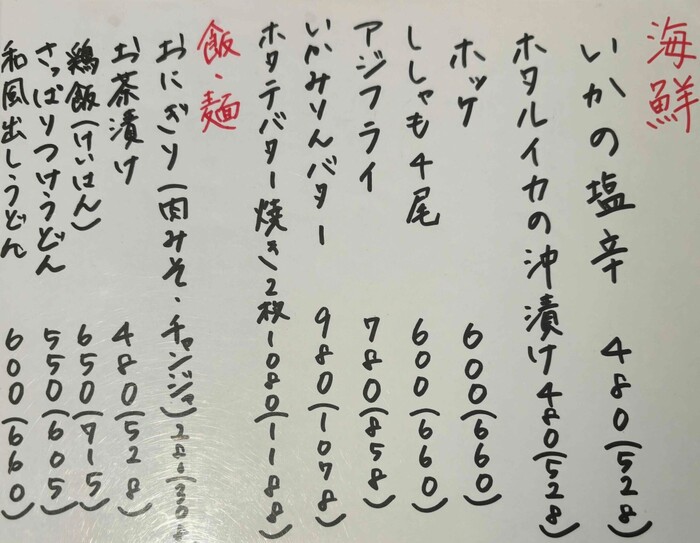 海鮮
いかの塩辛 480(528)
ホタルイカの沖漬け480(528)
ホッケ 600(660)
ししゃも4尾 600(660)
アジフライ 780(858)
いかみりんバター 980(1078)
ホタテバター焼き)2枚1080(1188)
飯・麺
おにぎり(肉みそ・チャンジャ)280(308
お茶漬け 480(528)
鶏飯(けいはん) 650(715)
さっぱりつけうどん 550(605)
和風出しうどん 600(660)